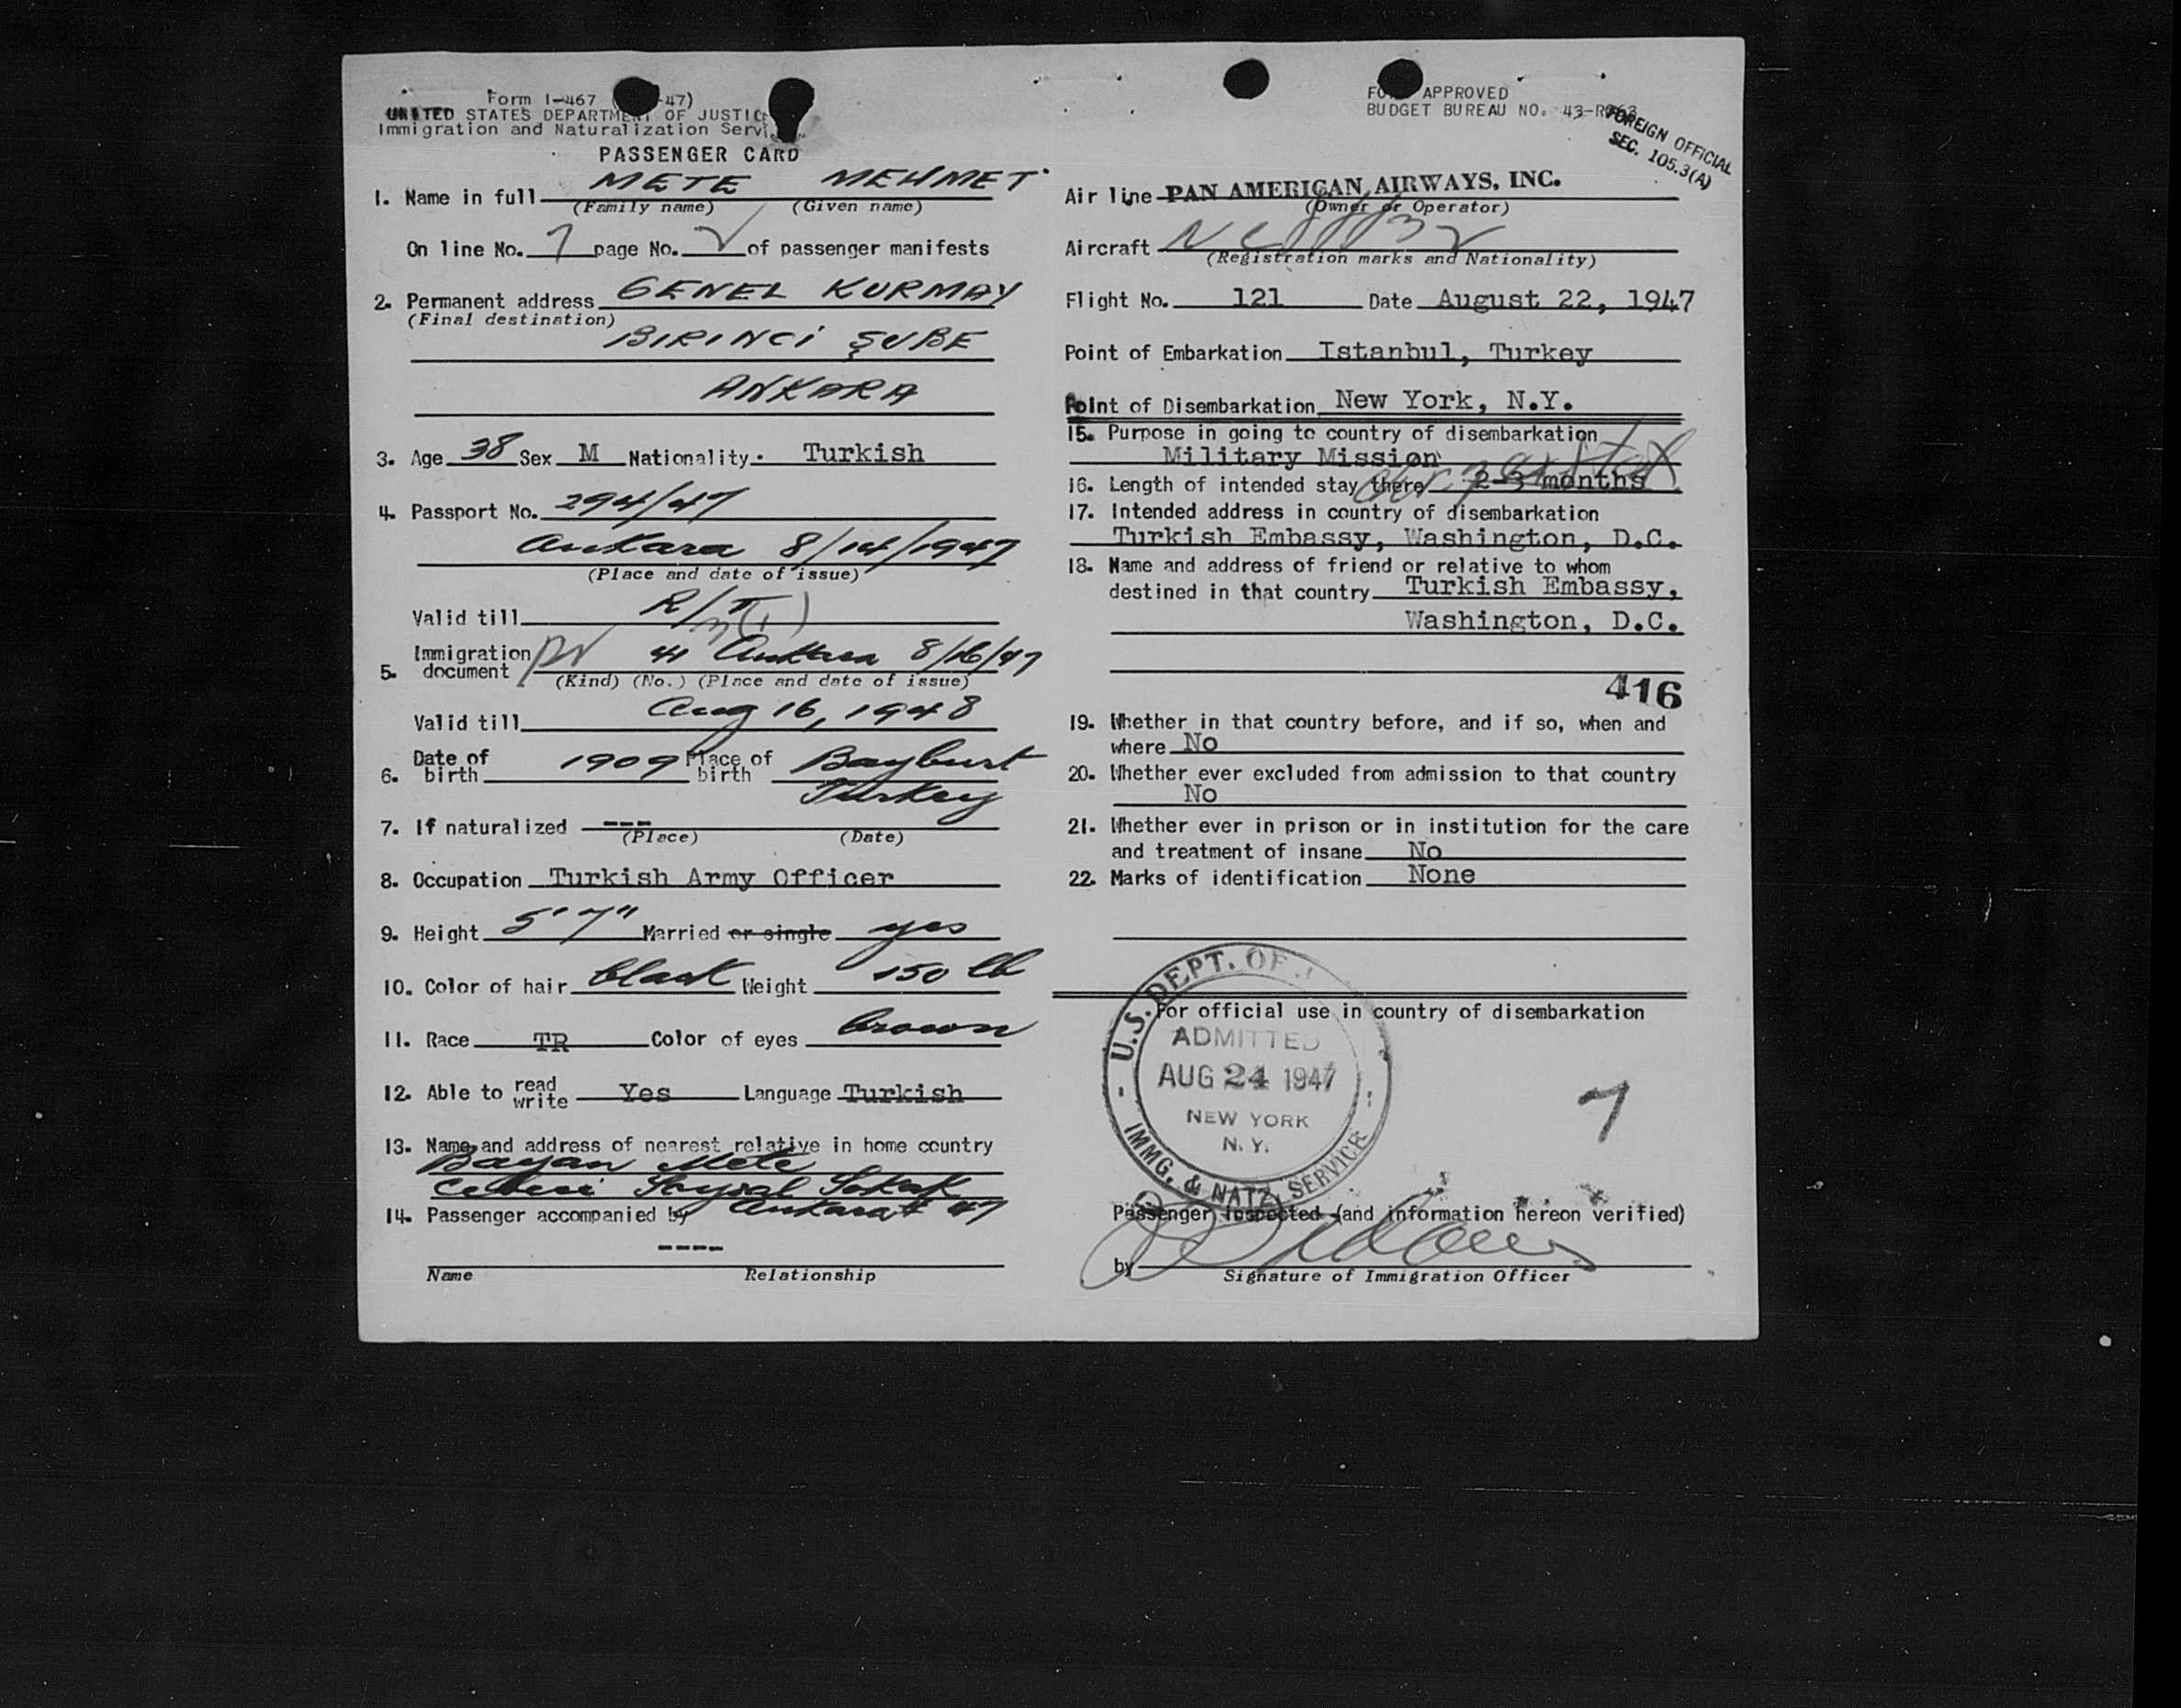 Form I-467 -47)
UNITED STATES DEPARTMENT OF JUSTIC
Immigration and Naturalization Servi
PASSENGER CARD
1. Name in full METE MEHMET
(Family name) (Given name)
On line No. 7 page No. 2 of passenger manifests
2. Permanent address GENEL KURMAY
(Final destination)
BIRINCİ ŞUBE
ANKARA
3. Age 38 Sex M Nationality Turkish
4. Passport No. 294/47
Ankara 8/14/1947
(Place and date of issue)
Valid till
5. Immigration document 41 Ankara 8/16/47
(Kind) (No.) (Place and date of issue)
Valid till Aug 16, 1948
6. Date of birth 1909 Place of birth Bayburt
Turkey
7. If naturalized ---
(Place) (Date)
8. Occupation Turkish Army Officer
9. Height 5' 7" Married or single yes
10. Color of hair black Weight 150 lb
11. Race TR Color of eyes brown
12. Able to read write Yes Language Turkish
13. Name and address of nearest relative in home country
Bayan Mete
Soysal Sokak
14. Passenger accompanied by Ankara 47
----
Name Relationship
FO APPROVED
BUDGET BUREAU NO. 43-R063
FOREIGN OFFICIAL
SEC. 105.3(A)
Air line PAN AMERICAN AIRWAYS, INC.
(Owner or Operator)
Aircraft
(Registration marks and Nationality)
Flight No. 121 Date August 22, 1947
Point of Embarkation Istanbul, Turkey
Point of Disembarkation New York, N.Y.
15. Purpose in going to country of disembarkation
Military Mission
16. Length of intended stay there 2-3 months
17. Intended address in country of disembarkation
Turkish Embassy, Washington, D.C.
18. Name and address of friend or relative to whom
destined in that country Turkish Embassy,
Washington, D.C.
416
19. Whether in that country before, and if so, when and
where No
20. Whether ever excluded from admission to that country
No
21. Whether ever in prison or in institution for the care
and treatment of insane No
22. Marks of identification None
For official use in country of disembarkation
U.S. DEPT. OF J
ADMITTED
AUG 24 1947
NEW YORK
N. Y.
IMMG. & NATZ. SERVICE
7
Passenger inspected (and information hereon verified)
by
Signature of Immigration Officer